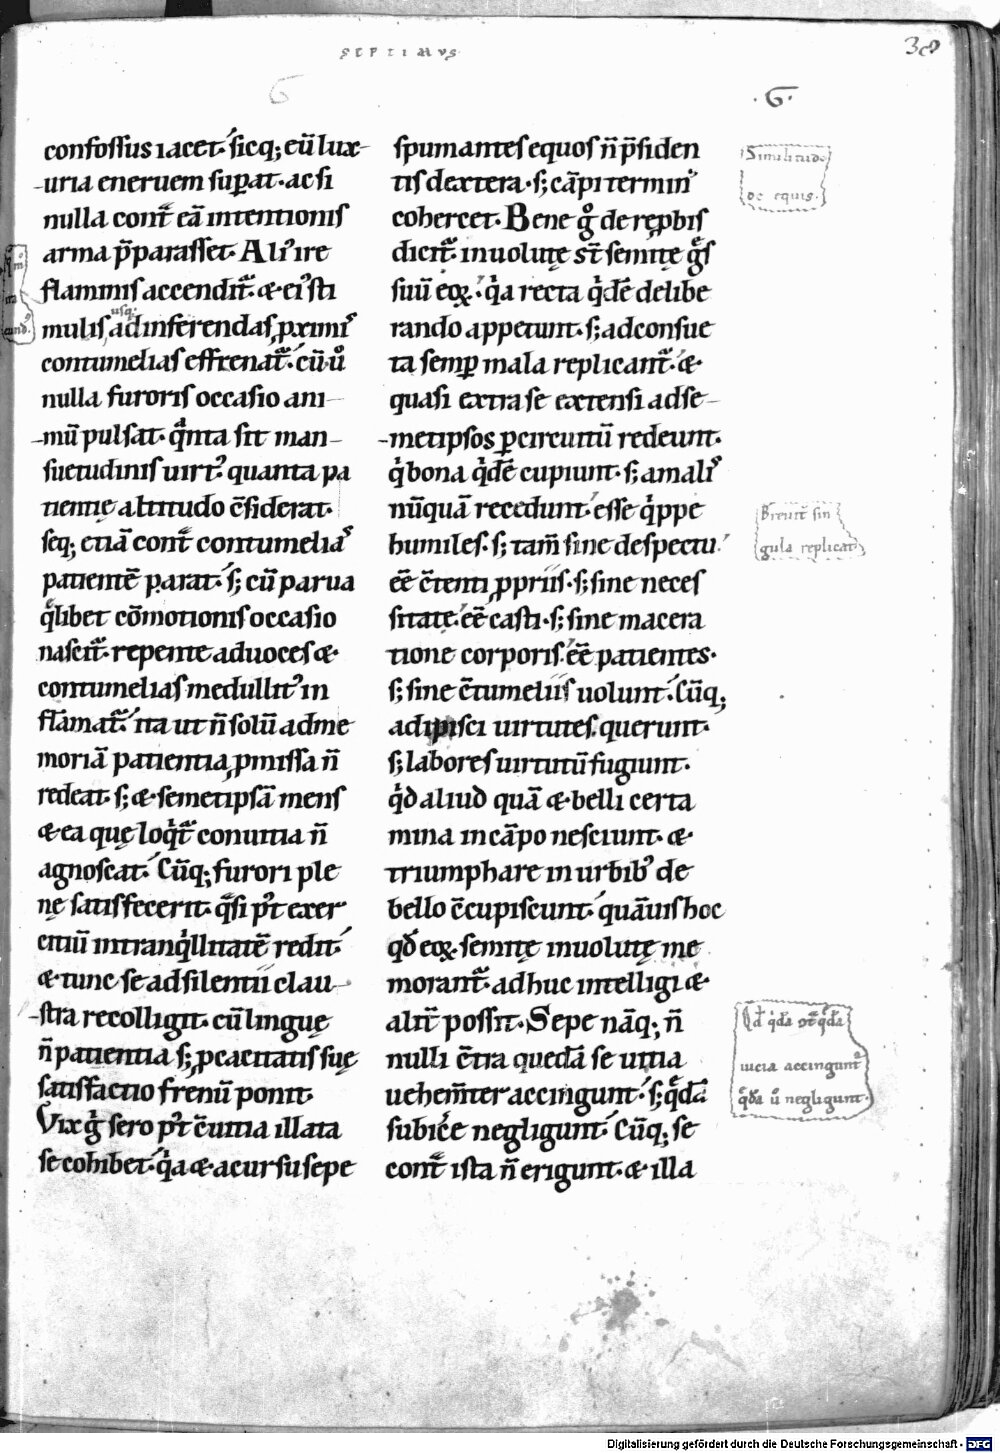 SEPTIMVS
38
G
·G·
confossus iacet· sicq; eū lux
uria eneruem sup̄at· ac si
nulla cont̄ eā intentionis
arma p̄parasset· Aliꝰ ire
flammis accendit᷑· & eiꝰ sti
mulis usq; ad inferendas ꝓximiꝰ
contumelias effrenat᷑· cū ů
nulla furoris occasio ani
mū pulsat· qͣnta sit man
suetudinis uirtꝰ quanta pa
tientię altitudo c̄siderat·
seq; etiā cont̄ contumeliāꝰ
patientē parat· s; cū parua
qͣlibet cōmotionis occasio
nascit᷑· repente ad uoces &
contumelias medullitꝰ in
flāmat᷑· ita ut n̄ solū ad me
moriā patientia ꝓmissa n̄
redeat· s; & semetipsā mens
& ea quę loqͥt᷑ conuitia n̄
agnoscat· Cūq; furori ple
ne satisfecerit· qͣsi pꝰt exer
citiū in tranqͥllitatē redit·
& tunc se ad silentii clau
stra recolligit· cū linguę
n̄ patientia s; ꝓcacitatis suę
satisfactio frenū ponit·
Vix gͦ sero pꝰt c̄uitia illata
se cohibet· qͥa & a cursu sepe
spumantes equos n̄ p̄siden
tis dextera· s; cāpi terminꝰ
cohercet· Bene gͦ de rep̱bis
dicit᷑· inuolutę st̄ semitę gͣs
suū eoꝝ· qͥa recta qͥdē delibe
rando appetunt· s; ad consue
ta semꝑ mala replicant᷑· &
quasi extra se extensi ad se
metipsos ꝑ circuitū redeunt·
qͥ bona qͥdē cupiunt· s; a maliꝰ
nūquā recedunt· esse qͥppe
humiles· s; tam̄ sine despectu·
eē c̄tenti ꝓpriis· s; sine neces
sitate· eē casti· s; sine macera
tione corporis· eē patientes·
s; sine c̄tumeliis uolunt· Cūq;
adipisci uirtutes querunt·
s; labores uirtutū fugiunt·
qͥd aliud quā & belli certa
mina in cāpo nesciunt· &
triumphare in urbibꝰ de
bello c̄cupiscunt· quāuis hoc
qđ eoꝝ semitę inuolutę me
morant᷑· adhuc intelligi &
alit̄ possit· Sepe nāq; n̄
nulli c̄tra quedā se uitia
uehem̄ter accingunt· s; qͣdā
subic̄e negligunt· Cūq; se
cont̄ ista n̄ erigunt· & illa
Similitudo
de equis·
Breuit̄ sin
gula replicat᷑
Qđ qͥdā c̄t qͣdā
uicia accingunt᷑
qͣdā ů negligunt·
Digitalisierung gefördert durch die Deutsche Forschungsgemeinschaft - DFG